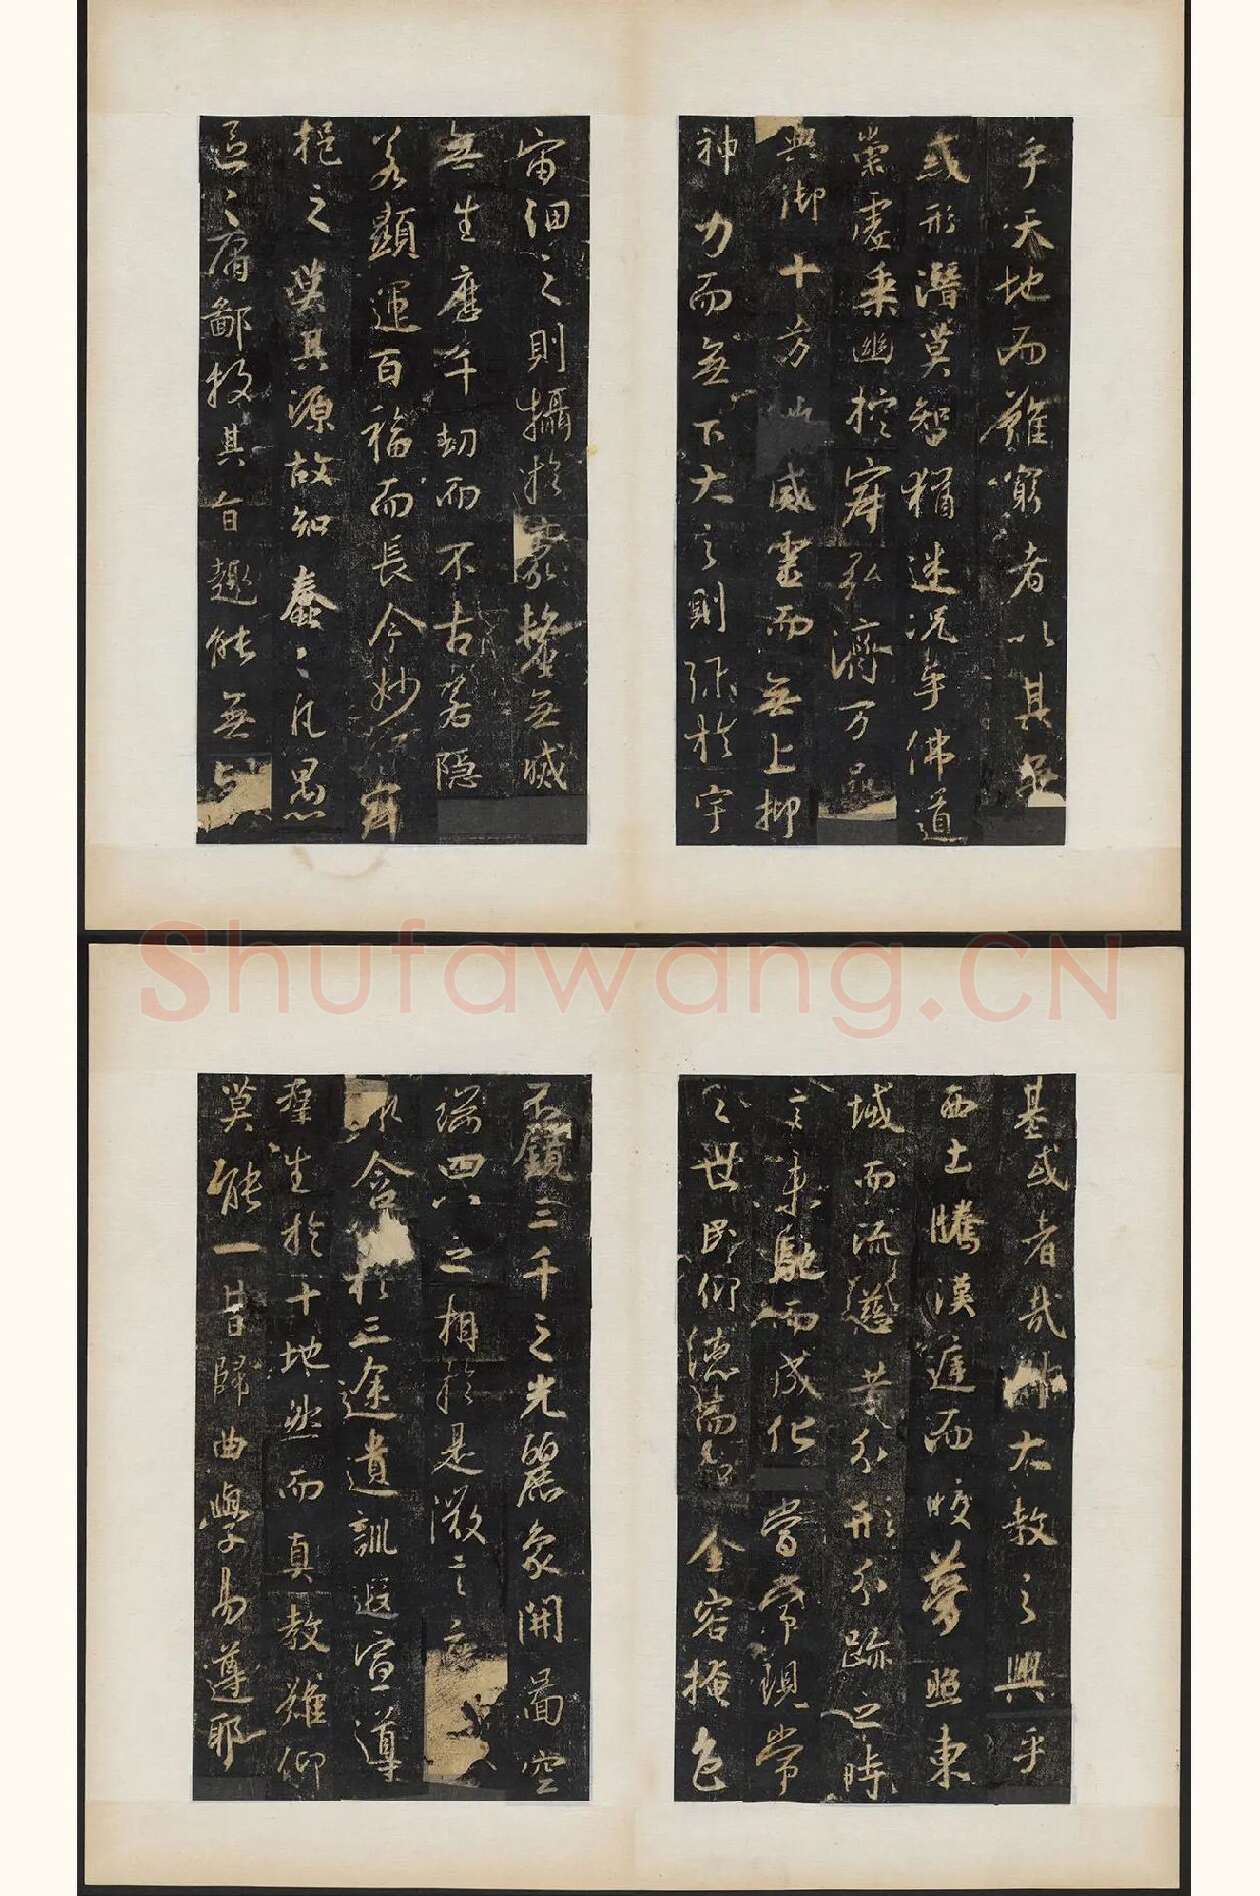 乎天地而難窮者以其無
或形潛莫智猶迷況乎佛道
崇虛乘幽控寂弘濟万品
典御十方威靈而無上抑
神力而無下大之則弥於宇
宙細之則攝於豪釐無滅
無生歷千劫而不古若隱
若顯運百福而長今妙
挹之莫其源故知蠢々凡愚
區々庸鄙投其旨趣能無
基或者哉大教之興乎
西土騰漢庭而皎夢照東
域而流慈昔分形分跡之時
言未馳而成化當常現常
之世民仰德而金容掩色
不鏡三千之光麗象開圖空
端四八之相於是微言
含於三途遺訓遐宣導
群生於十地然而真教難仰
莫能一旨歸曲學易遵耶
Shufawang.CN